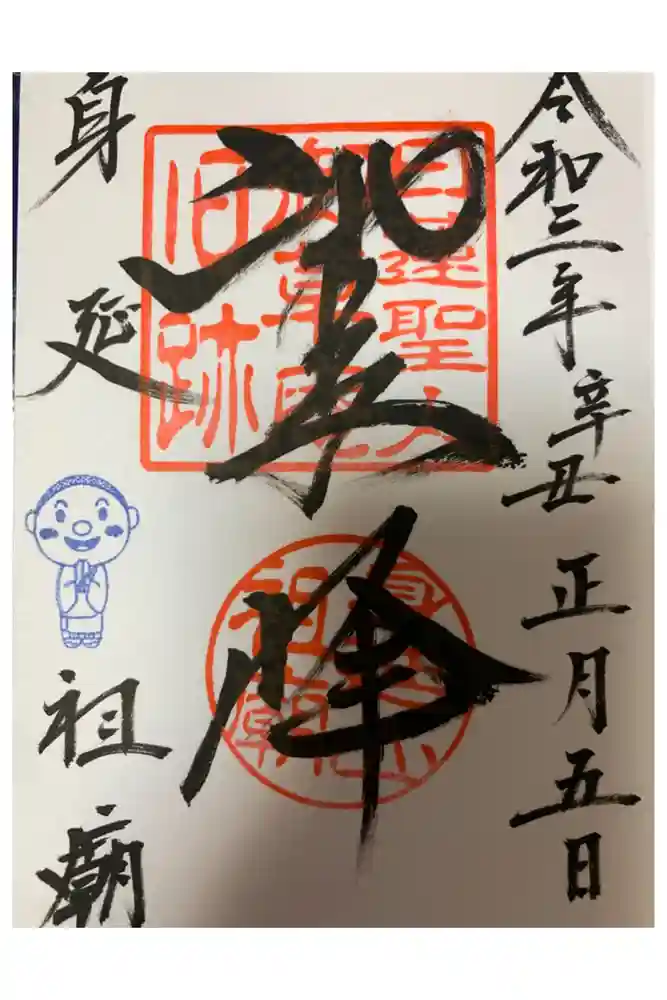 令和三年辛丑正月五日
日蓮聖人
御草庵
旧跡
峰
身延山
祖廟
身延
祖廟